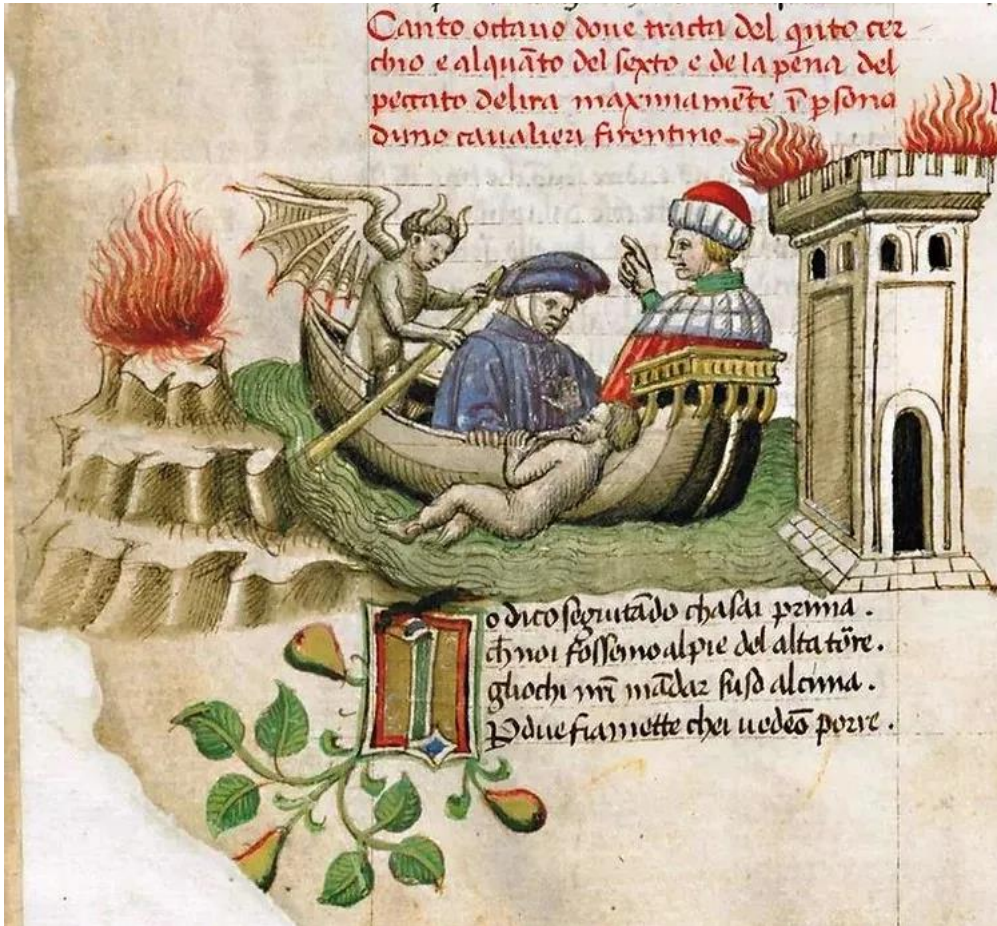 Canto octauo doue tracta del quīto cer-
chio e alquāto del sexto e de la pena del
peccato delira maximamēte ī psona
duno caualieri firentino.
Io dico seguitādo chasai prima.
chnoi fossemo alpie del alta torre.
gliochi nrī mādar suso alcima.
P due fiamette chei uedeō porre.